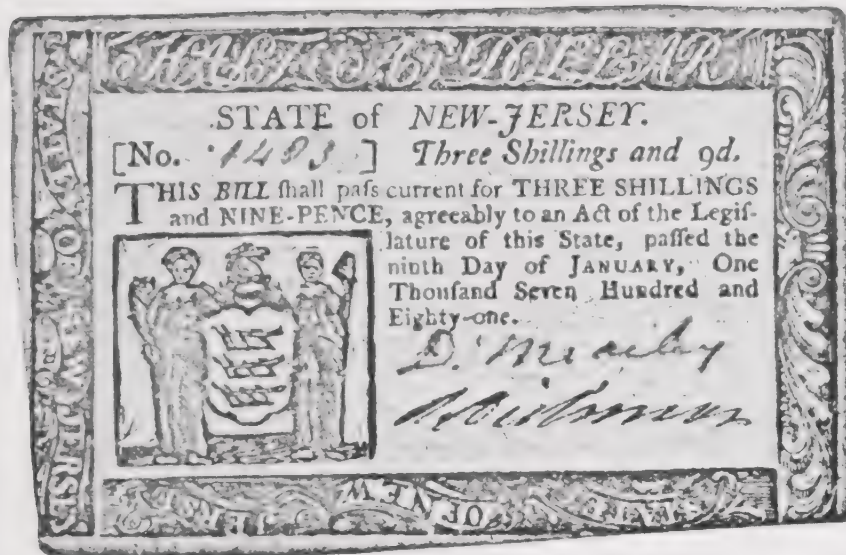 HALF A DOLLAR
STATE of NEW-JERSEY.
[No. 1483 ] Three Shillings and 9d.
THIS BILL ſhall paſs current for THREE SHILLINGS
and NINE-PENCE, agreeably to an Act of the Legiſ-
lature of this State, paſſed the
ninth Day of JANUARY, One
Thouſand Seven Hundred and
Eighty-one.
STATE OF NEW JERSEY
STATE OF NEW JERSEY